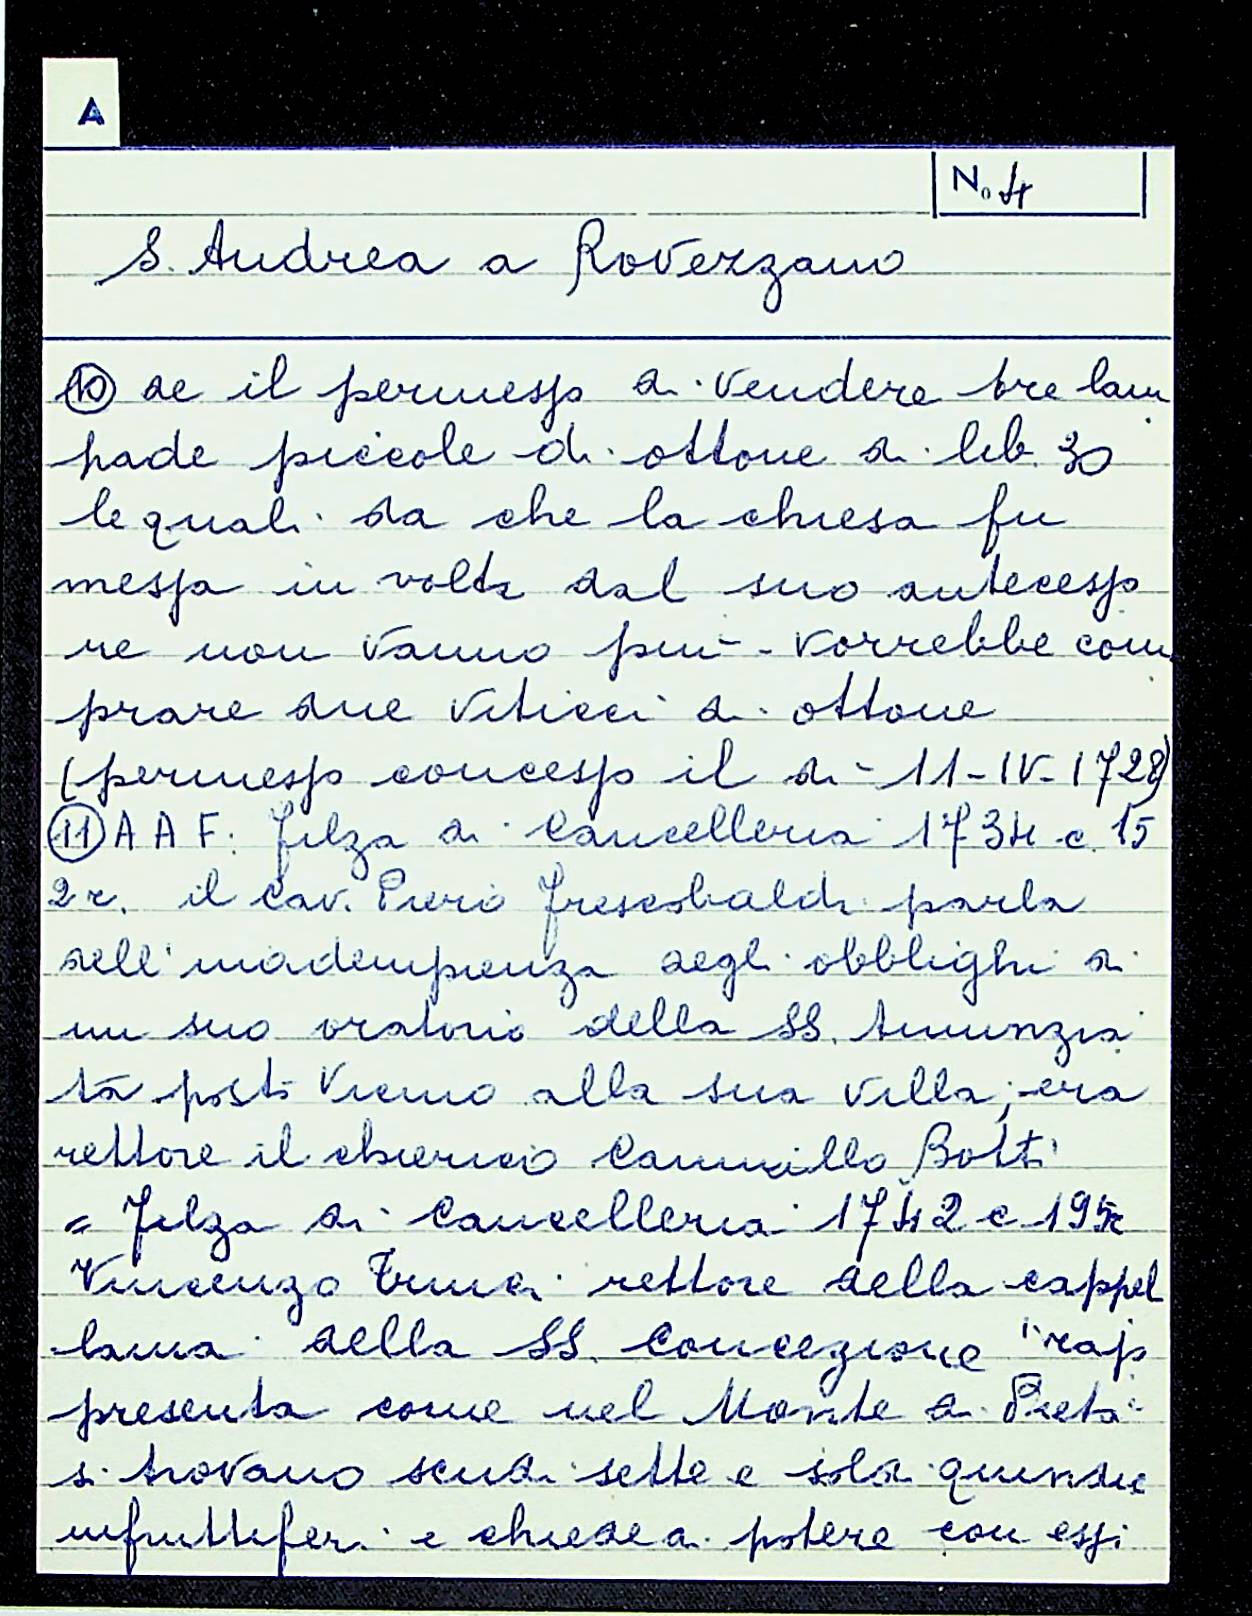 A
N. 4
S. Andrea a Rovezzano
(10) de il permesso di vendere tre lam
pade piccole di ottone di lib. 30
le quali da che la chiesa fu
messa in volta dal suo antecesso
re non vanno più - vorrebbe com
prare due viticci di ottone
(permesso concesso il dì - 11-IV-1728)
(11) A A F: Filza di Cancelleria 1734 c. 15
2r. il Cav. Piero Frescobaldi parla
dell'inadempienza degli obblighi di
un suo oratorio della SS. Annunzia
ta posto vicino alla sua villa; era
rettore il chierico Cammillo Botti
= Filza di Cancelleria 1742 c 195r
Vincenzo Trinci rettore della cappel
lania della SS. Concezione "rap
presenta come nel Monte di Pietà
si trovano scudi sette e soldi quindic
infruttiferi e chiede di potere con essi